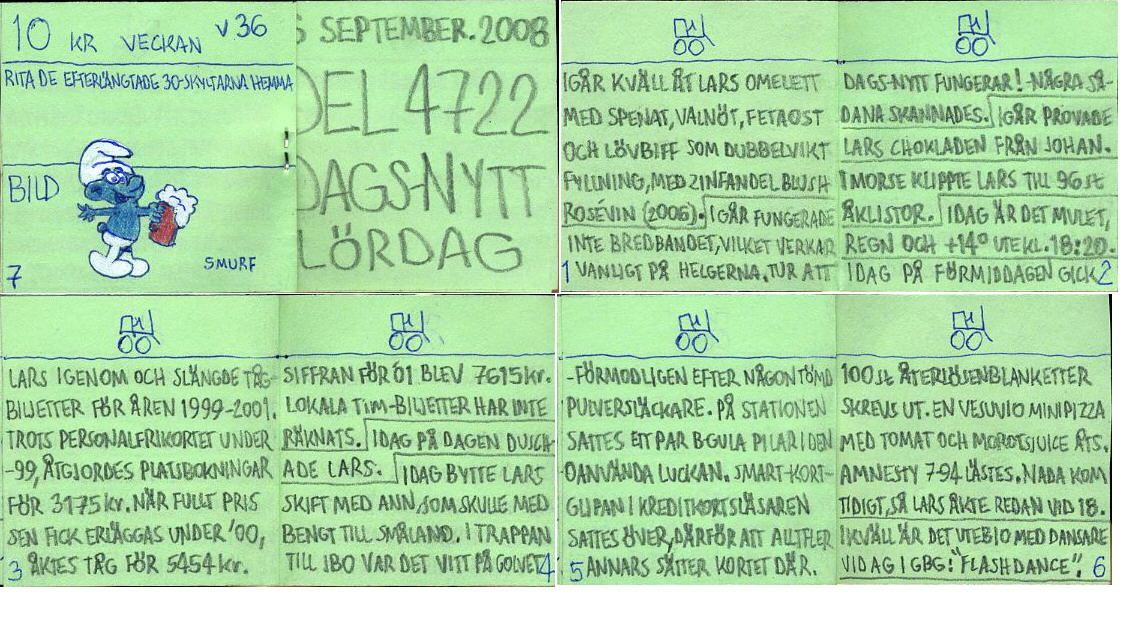 10 KR VECKAN V36
RITA DE EFTERLÄNGTADE 30-SKYLTARNA HEMMA
BILD
SMURF
7
SEPTEMBER.2008
DEL 4722
DAGS-NYTT
LÖRDAG
IGÅR KVÄLL ÅT LARS OMELETT
MED SPENAT, VALNÖT, FETAOST
OCH LÖVBIFF SOM DUBBELVIKT
FYLLNING, MED ZINFANDEL BLUSH
ROSÉVIN (2006). IGÅR FUNGERADE
INTE BREDBANDET, VILKET VERKAR
1 VANLIGT PÅ HELGERNA. TUR ATT
DAGS-NYTT FUNGERAR! NÅGRA SÅ-
DANA SKANNADES. IGÅR PROVADE
LARS CHOKLADEN FRÅN JOHAN.
IMORSE KLIPPTE LARS TILL 96 st
ÅKLISTOR. IDAG ÄR DET MULET,
REGN OCH +14° UTE KL.18:20.
IDAG PÅ FÖRMIDDAGEN GICK 2
LARS IGENOM OCH SLÄNGDE TÅG-
BILJETTER FÖR ÅREN 1999-2001.
TROTS PERSONALFRIKORTET UNDER
-99, ÅTGJORDES PLATSBOKNINGAR
FÖR 3175 kr. NÄR FULLT PRIS
SEN FICK ERLÄGGAS UNDER '00,
3 ÅKTES TÅG FÖR 5454 kr.
SIFFRAN FÖR 01 BLEV 7615 kr.
LOKALA TIM-BILJETTER HAR INTE
RÄKNATS. IDAG PÅ DAGEN DUSCH-
ADE LARS. IDAG BYTTE LARS
SKIFT MED ANN, SOM SKULLE MED
BENGT TILL SMÅLAND. I TRAPPAN
TILL IBO VAR DET VITT PÅ GOLVET 4
-FÖRMODLIGEN EFTER NÅGON TÖMD
PULVERSLÄCKARE. PÅ STATIONEN
SATTES ETT PAR B GULA PILAR I DEN
OANVÄNDA LUCKAN. SMART-KORT-
GLIPAN I KREDITKORTSLÄSAREN
SATTES ÖVER, DÄRFÖR ATT ALLTFLER
5 ANNARS SÄTTER KORTET DÄR.
100 st ÅTERLÖSENBLANKETTER
SKREVS UT. EN VESUVIO MINIPIZZA
MED TOMAT OCH MOROTSJUICE ÅTS.
AMNESTY 794 LÄSTES. NADA KOM
TIDIGT, SÅ LARS ÅKTE REDAN VID 18.
IKVÄLL ÄR DET UTEBIO MED DANSARE
VID AG I GBG: "FLASHDANCE". 6